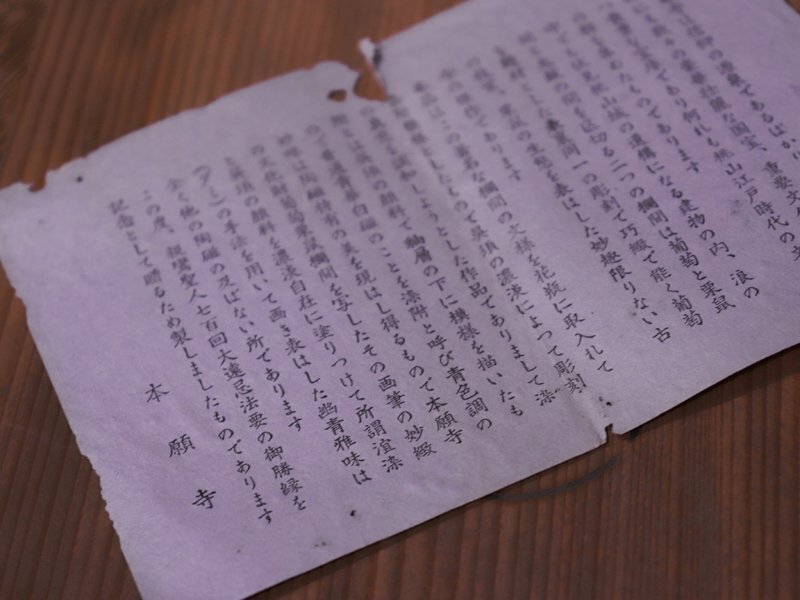 信仰の源泉であるばかり
の豪華壮麗な国宝、重要文化の
であり何れも桃山江戸時代の
を集めたものであります
中でも伏見桃山城の遺構になる建物の内、浪の
間と太鼓の間を仕切る二つの欄間は葡萄と栗鼠
を題材とした表裏同一の彫刻で巧緻で能く葡萄
の枝、栗鼠の生態を表はした妙趣限りない古
今の傑作であります
本品はこの著名な欄間の文様を花瓶に取入れて
したもので呉須の濃淡によつて彫刻
の調和しようとした作品でありまして染
附とは呉須の顔料で釉層の下に模様を描いたも
ので普通青華白磁のことを染附と呼び青色調の
妙味は陶磁特有の美を現はし得るもので本願寺
の文化財葡萄栗鼠欄間を写したその画筆の妙緻
と呉須の顔料を濃淡自在に塗りつけて所謂渲染
(ダミ)の手法を用いて画き表はした幽青雅味は
全く他の陶磁の及ばない所であります
この度、親鸞聖人七百回大遠忌法要の御勝縁を
記念として贈るため製しましたものであります
本願寺